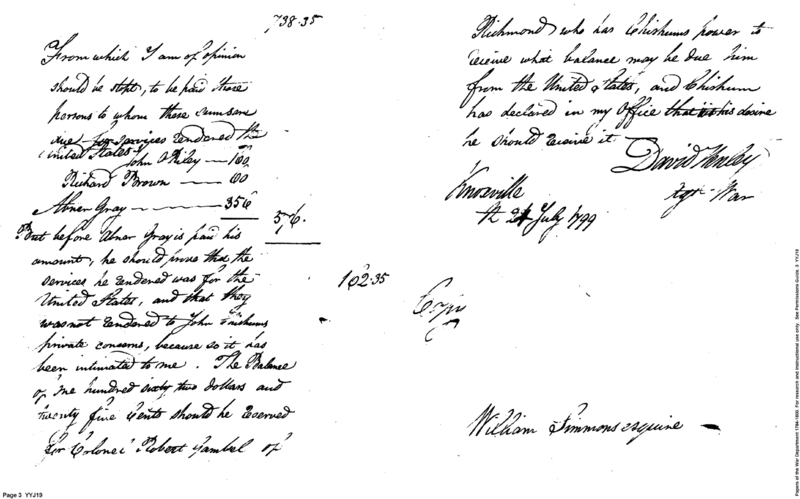 738.35
From which I am of opinion
should be stopt, to be paid those
persons to whom these sums are
due for services rendered the
United States
John Riley — 160
Richard Brown — 60
Abner Gray — 356
576.
But before Abner Gray is paid his
amount, he should prove that the
services he rendered was for the
United States, and that they
was not rendered to John Chishums
private concerns, because so it has
been intimated to me. The Balance
162.35
of One hundred sixty two dollars and
twenty five Cents should be reserved
for Colonel Robert Gambel of
Richmond who has Chishums power to
receive what balance may be due him
from the United States, and Chishum
has declared in my Office that it is his desire
he should receive it.
David Henley
Agt War
Knoxville
24 July 1799
Copy
William Simmons esquire
Page 3 YYJ19
Papers of the War Department 1784-1800. For research and instructional use only. See Permissions Guide. 3 YYJ19